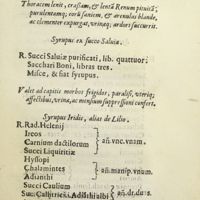 Thoracem lenit, crassam, & lentā Renum pituitā;
purulentamq; corū saniem, & arenulas blande,
ac clementer expurgat, vrinaq; ardori succurrit.
Syrupus ex succo Saluiæ.
R. Succi Saluiæ purificati, lib. quattuor:
Sacchari Boni, libras tres.
Misce, & fiat syrupus.
Valet ad capitis morbos frigidos, paralysi, vteriq;
affectibus, vrina, ac mensium suppressioni confert.
Syrupus Iridis, alias de Lilio.
R. Rad. Helenij
Ireos
Carnium dactilorum
Succi Liquiritiæ
añ. vnc. vnam.
Hyssopi
Chalamintes
Adianthi
añ. manip. vnum.
Succi Caulium
Succi
Adosthi albi
añ. dr. du s.